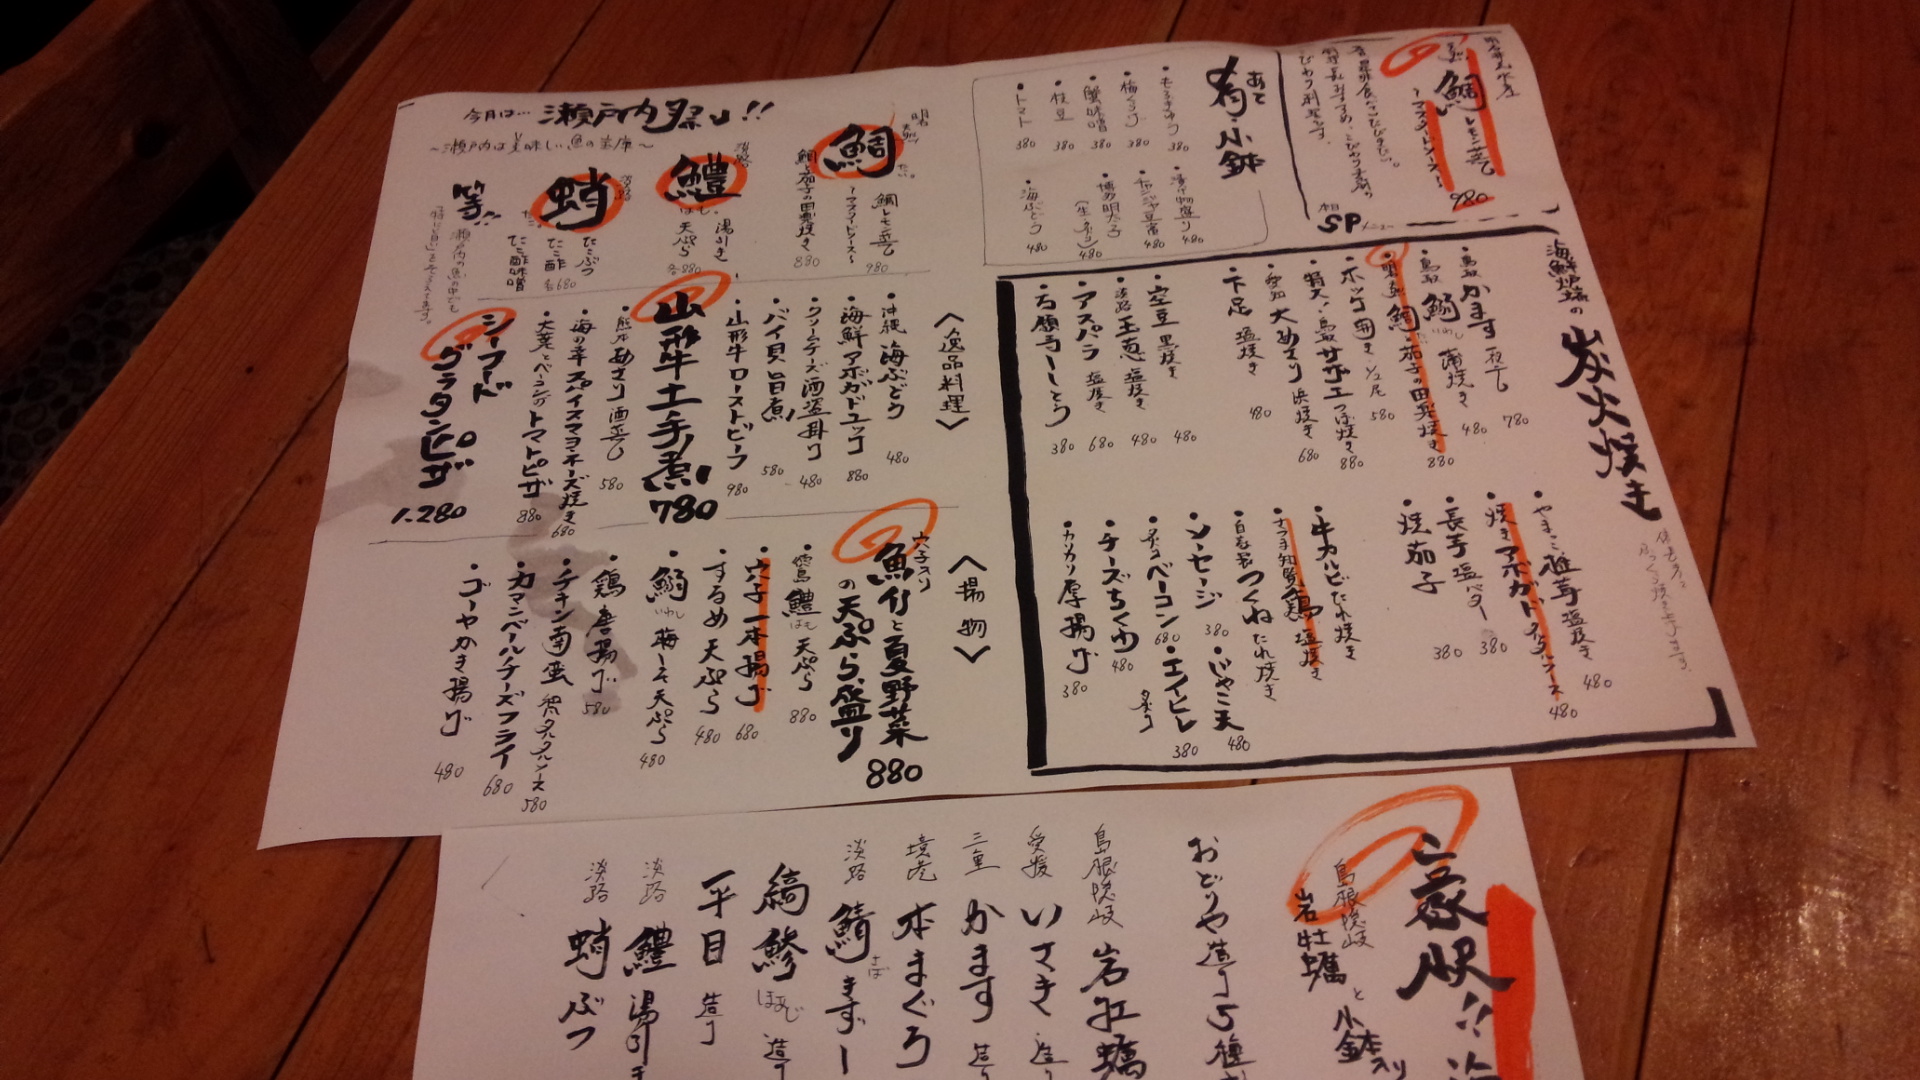 鯛レモン蒸し
～マスタードソース～
980
本日SPメニュー
あて
肴・小鉢
・もろきゅう 380
・梅くらげ 380
・蟹味噌 380
・枝豆 380
・トマト 380
・漬け物盛り 480
・チャンジャ豆腐 480
・博多明太子 480
・海ぶどう 480
海鮮炉端の
炭火焼き
・鳥取 かます 780
・鳥取 鰯 いわし 蒲焼き 480
・明石 鯛・茄子の田楽焼き 880
・ホッケ開き 1/2尾 580
・特大!鳥取サザエつぼ焼き 880
・愛知 大あさり 浜焼き 680
・下足 塩焼き 480
・空豆 黒焼き 480
・淡路 玉葱 塩焼き 480
・アスパラ 塩焼き 680
・万願寺しし唐 380
・やまこ椎茸 塩焼き 480
・焼きアボガド タルタルソース 480
・長芋 塩バター 380
・焼茄子 380
・牛カルビたれ焼き
・さつま知覧鶏 塩焼き
・自家製つくね たれ焼き
・ソーセージ 380
・じゃこ天 480
・炙りベーコン 680
・エイヒレ 炙り 380
・チーズちくわ 480
・カリカリ厚揚げ 380
今月は… 瀬戸内祭り!!
～瀬戸内は美味しい魚の宝庫～
明石 天然 鯛 たい。
鯛レモン蒸し
～マスタードソース～
980
鯛と茄子の田楽焼き
880
淡路 鱧 はも。
湯引き
天ぷら
各880
淡路 蛸 たこ。
たこぶつ
たこ酢
たこ酢味噌
各680
等!!
瀬戸内の魚の中でも
<逸品料理>
・沖縄 海ぶどう 480
・海鮮アボガドユッケ 880
・クリームチーズ酒盗掛け 480
・バイ貝旨煮 580
・山形牛ローストビーフ 980
山形牛土手煮 780
・熊本 あさり 酒蒸し 580
・海の幸スパイスマヨネーズ焼き 680
・大葉とベーコンのトマトピザ 880
・シーフード
グラタンピザ
1.280
<揚物>
穴子入り
・魚介と夏野菜
の天ぷら盛り
880
・淡路 鱧 はも 天ぷら 880
・穴子一本揚げ 680
・するめ天ぷら 480
・鰯 いわし 梅しそ天ぷら 480
・鶏唐揚げ 580
・チキン南蛮 タルタルソース 580
・カマンベールチーズフライ 680
・ゴーヤかき揚げ 480
島根隠岐
岩牡蠣
と
小鉢入り
おどりや造り5種
島根隠岐 岩牡蠣
愛援 いさき 造り
三重 かます 造り
境港 本まぐろ
淡路 鯖 さば きずし
縞鯵 造り
平目 造り
淡路 鱧 湯引き
淡路 蛸ぶつ